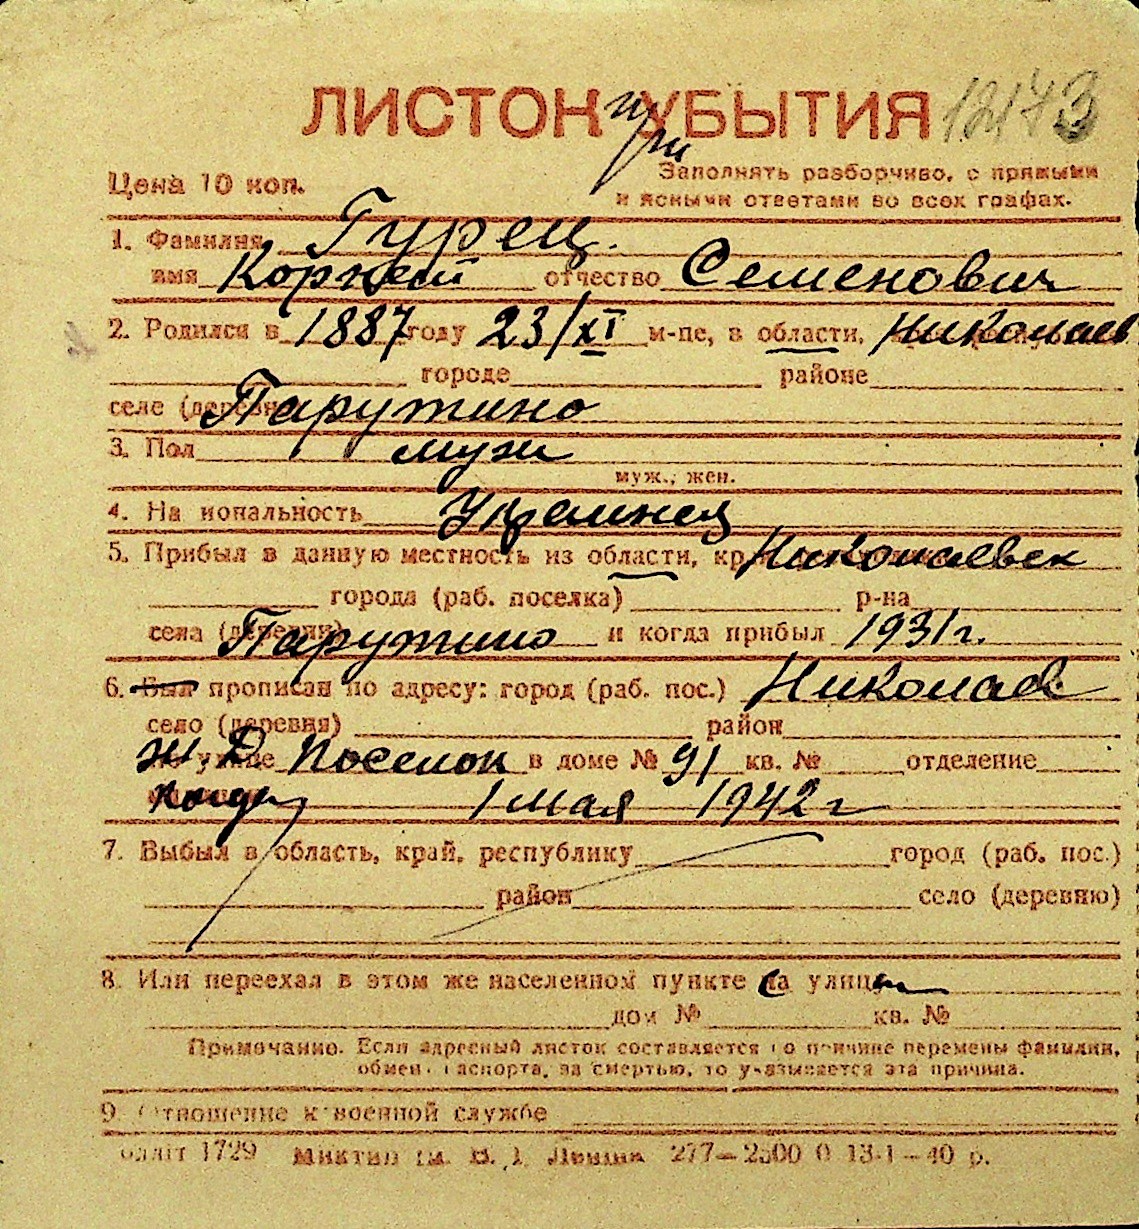 ЛИСТОК УБЫТИЯ 12173
при
Цена 10 коп.
Заполнять разборчиво, с прямыми
и ясными ответами во всех графах.
1. Фамилия Гурец.
имя Корней отчество Семенович
2. Родился в 1887 году 23/XI м-це, в области, Николаев
городе районе
селе (деревне) Парутино
3. Пол муж
муж., жен.
4. Национальность Украинец
5. Прибыл в данную местность из области, Николаевск
города (раб. поселка) р-на
села (деревни) Парутино и когда прибыл 1931 г.
6. Был прописан по адресу: город (раб. пос.) Николаев
село (деревня) район
Ж.Д. улице Поселок в доме № 91 кв. № отделение
когда 1 мая 1942 г
7. Выбыл в область, край, республику город (раб. пос.)
район село (деревню)
8. Или переехал в этом же населенном пункте са улицы
дом № кв. №
Примечание. Если адресный листок составляется по причине перемены фамилии,
обмен паспорта, за смертью, то указывается эта причина.
9. Отношение к военной службе
1729 Ленина 277—2500 0 13-1—40 р.